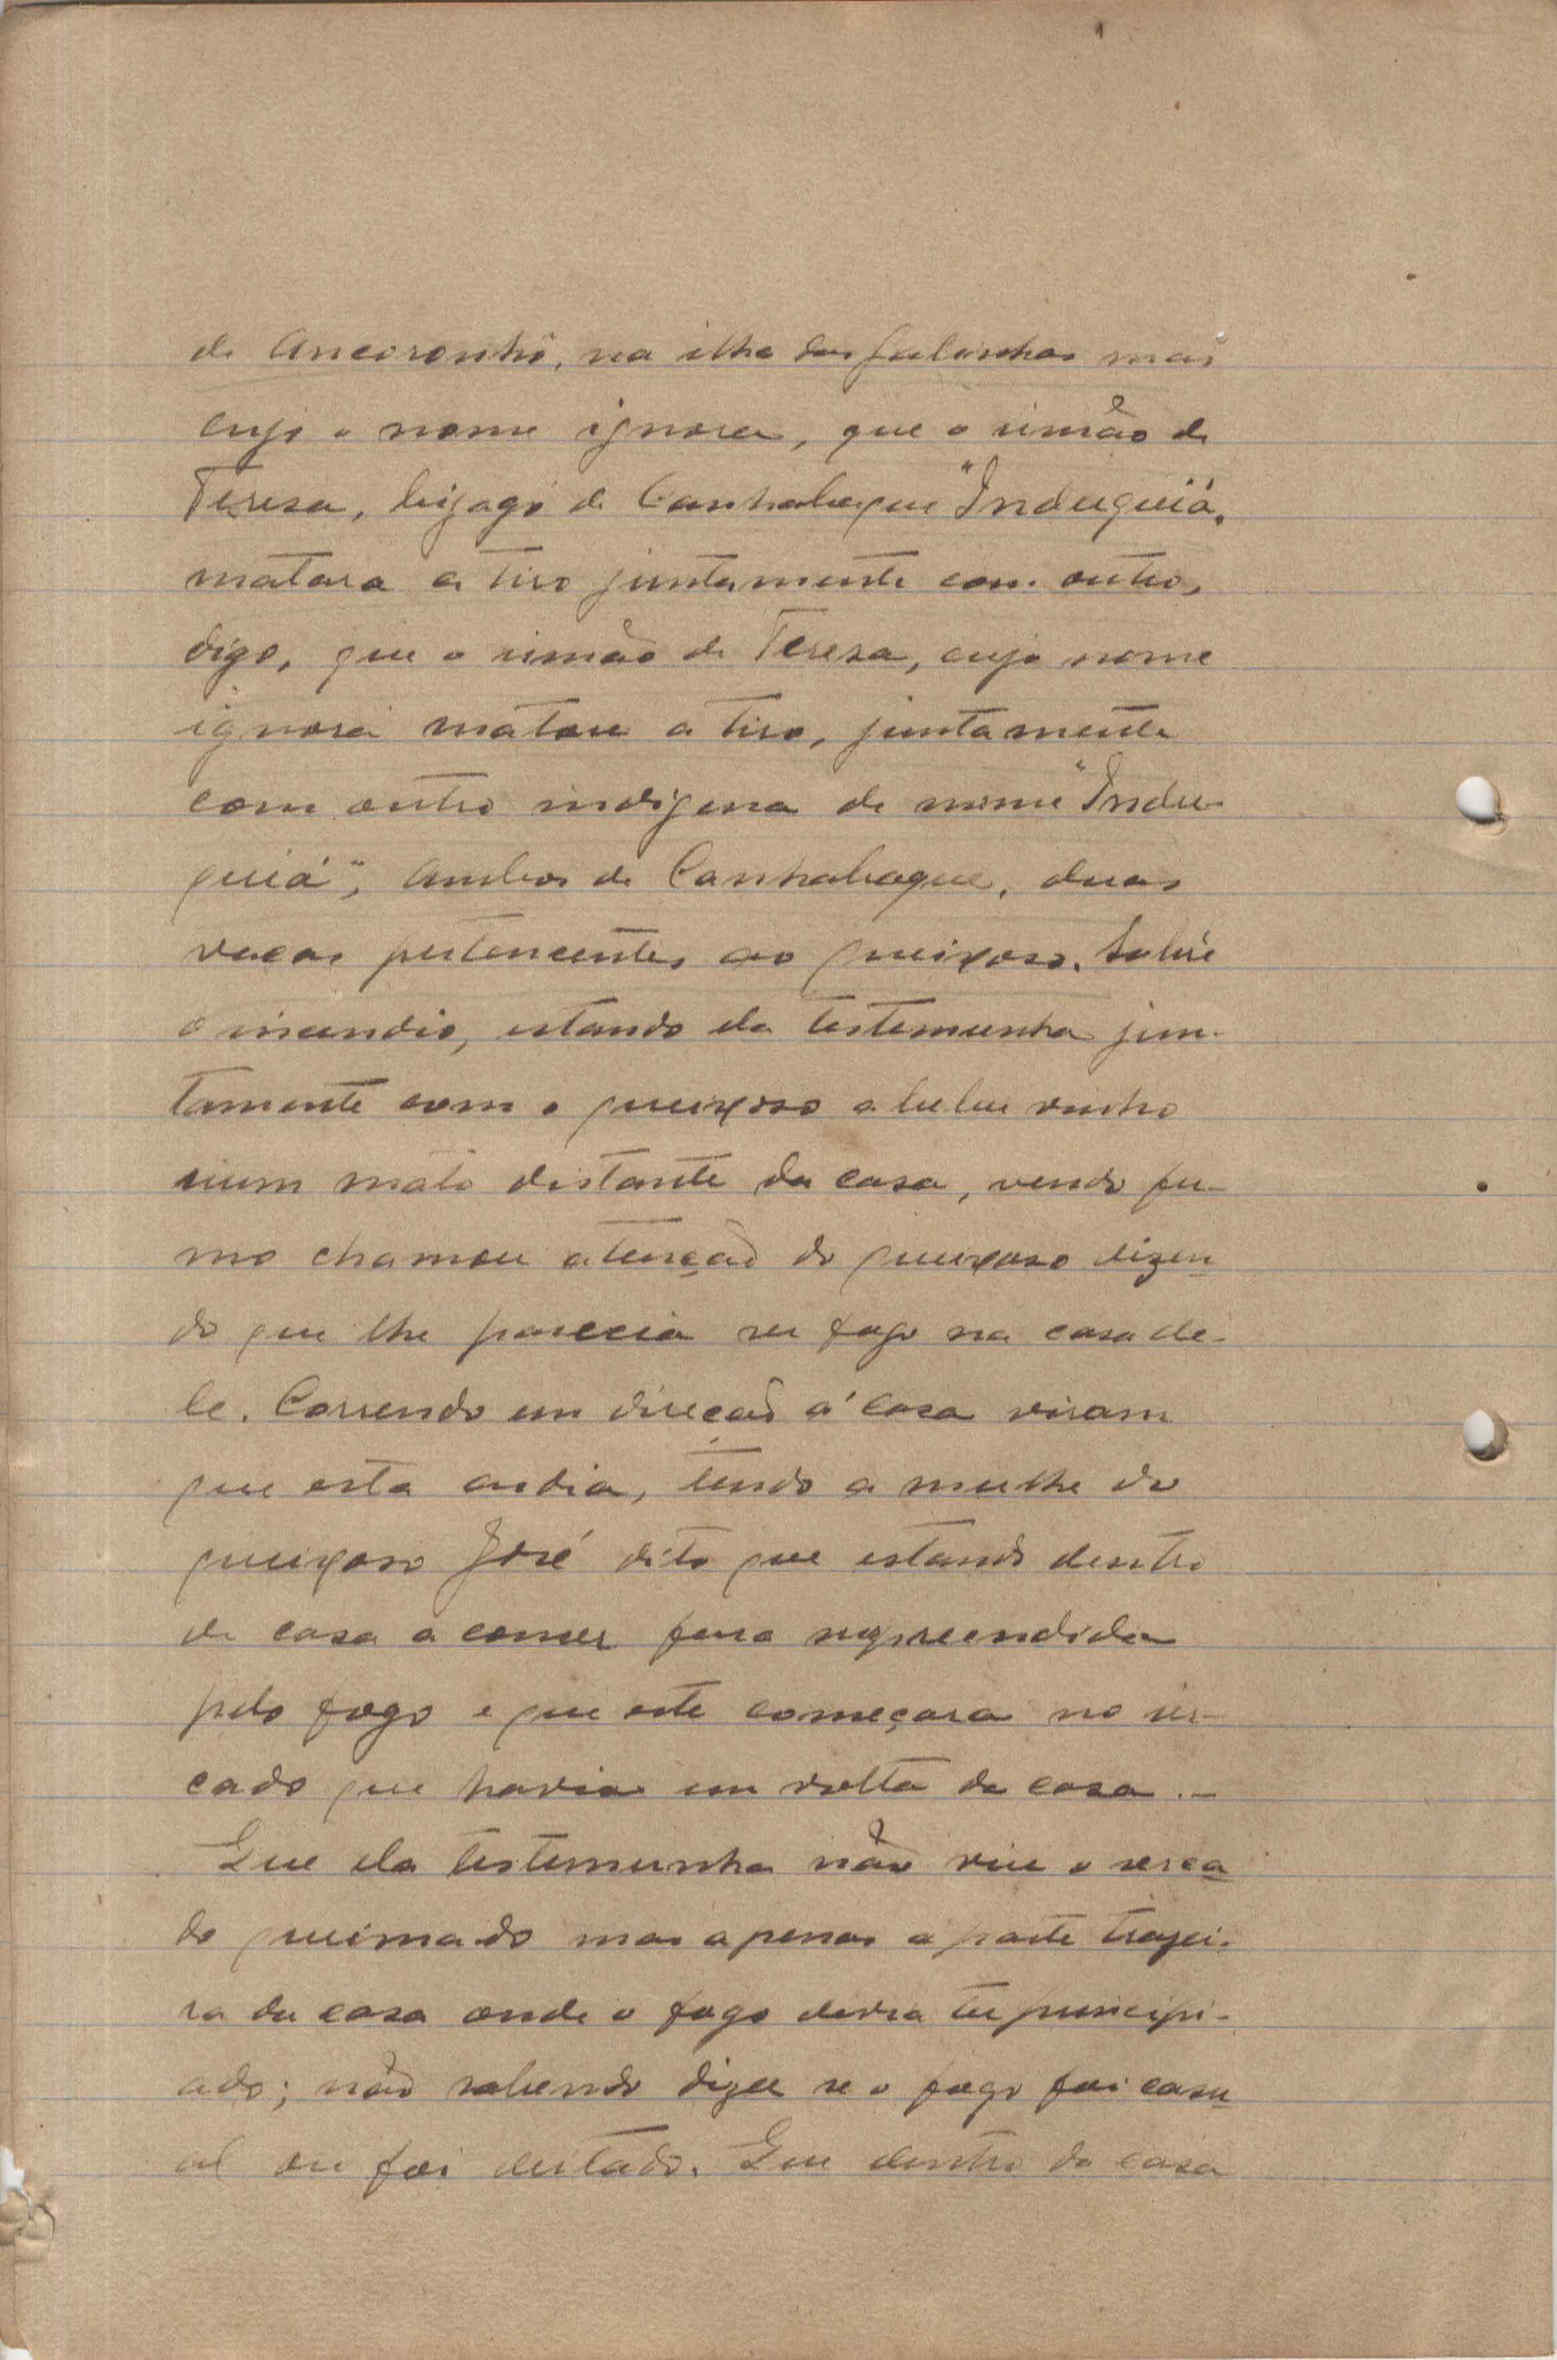 de Ancoronhô, na ilha das Galinhas mas
cujo o nome ignora, que o irmão de
Teresa, bijagó de Canhabaque "Induguiá,
matara a tiro juntamente com outro,
digo, que o irmão de Teresa, cujo nome
ignora matou a tiro, juntamente
com outro indigena de nome "Indu-
guiá", ambos de Canhabaque, duas
vacas pertencentes ao queixoso. Sobre
o incendio, estando ela testemunha jun-
tamente com o queixoso a beber vinho
num mato distante da casa, vendo fu-
mo chamou atenção do queixoso dizen
do que lhe parecia ser fogo na casa de-
le. Correndo em direcção á casa viram
que esta ardia, tendo a mulher do
queixoso José dito que estando dentro
de casa a comer fora surpreendida
pelo fogo e que este começara no cer-
cado que havia em volta da casa.-
Que ela testemunha não viu o cerca
do queimado mas apenas a parte trazei-
ra da casa onde o fogo devia ter principi-
ado; não sabendo dizer se o fogo foi casu
al ou foi deitado. Que dentro da casa